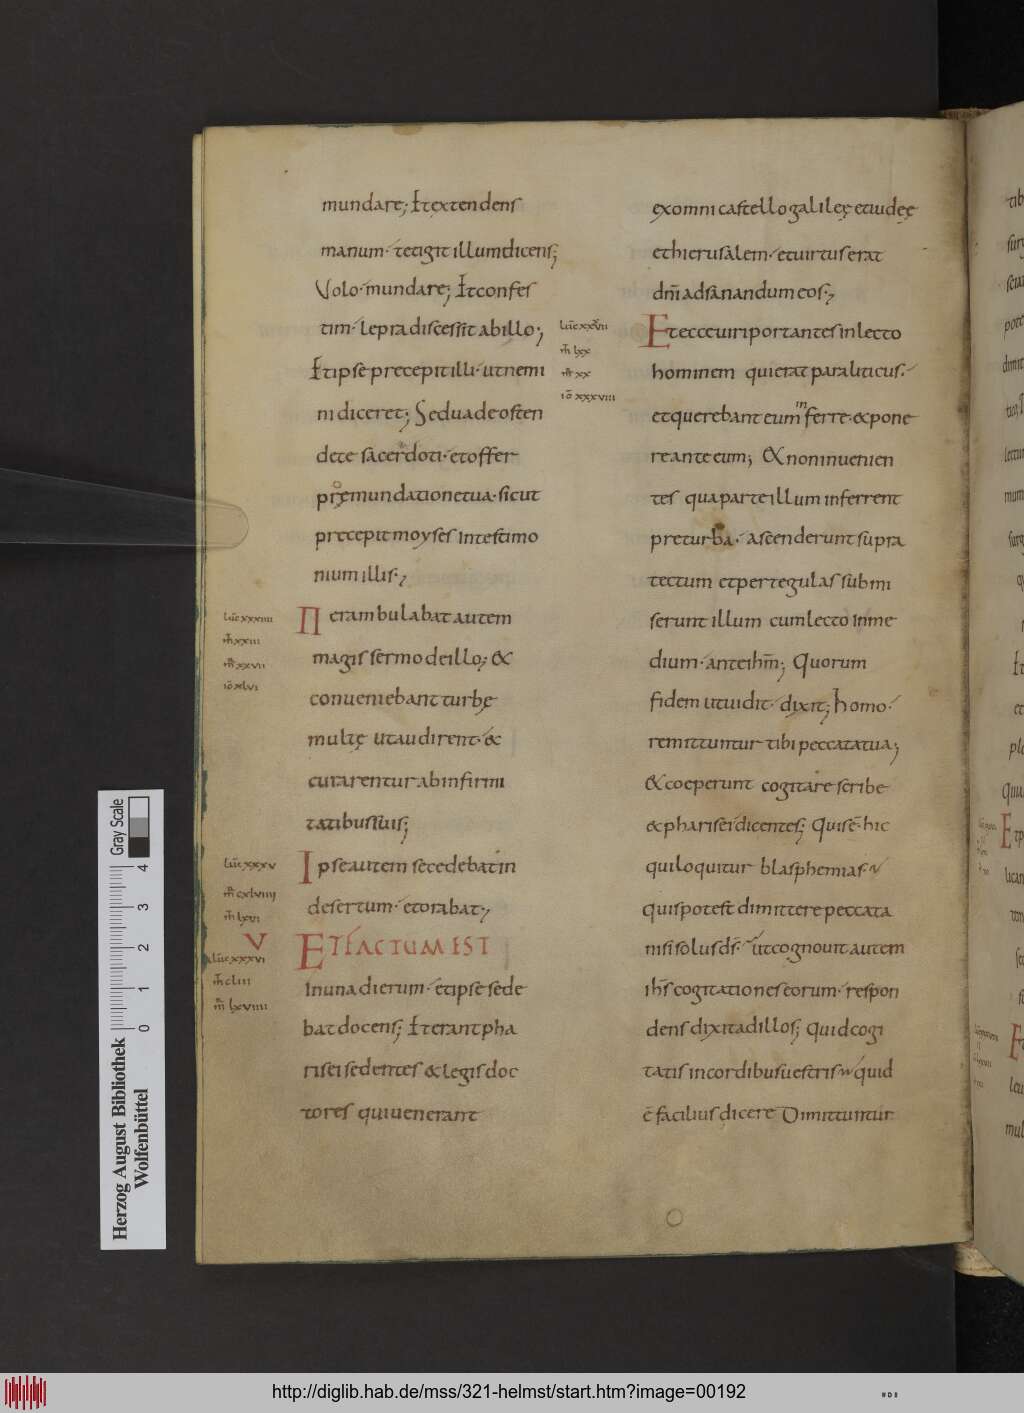 mundare; Et extendens
manum· tetigit illum dicens;
Volo· mundare; Et confes
tim· lepra discessit ab illo;
Et ipse precepit illi· ut nemi
ni diceret; Sed uade osten
de te sacerdoti· et offer
pro emundatione tua· sicut
precepit moyses in testimo
nium illis·,
luc̄ xxxiiii
m̄ xxiii
mr̄ xxvii
iō xlvi
Perambulabat autem
magis sermo de illo; &
conueniebant turbę
multę ut audirent· &
curarentur ab infirmi
tatibus suis;
luc̄ xxxv
mr̄ cxlviiii
m̄ lxvi
Ipse autem secedebat in
desertum· et orabat·,
V
luc̄ xxxvi
m̄ cliii
mr̄ lxviiii
ET FACTUM EST
In una dierum· et ipse sede
bat docens; Et erant pha
risei sedentes & legis doc
tores qui uenerant
ex omni castello galileę et iudeę
et hierusalem· et uirtus erat
dn̄i ad sanandum eos·,
luc̄ xxxvii
m̄ lxx
mr̄ xx
iō xxxviii
Et ecce uiri portantes in lecto
hominem qui erat paraliticus·
et querebant eum inferre· et pone
re ante eum; Et non inuenien
tes qua parte illum inferrent
pre turba· ascenderunt supra
tectum et per tegulas submi
serunt illum cum lecto in me
dium· ante ihm̄; Quorum
fidem ut uidit· dixit; homo·
remittuntur tibi peccata tua;
Et coeperunt cogitare scribe
et pharisei dicentes; Quis ē hic
qui loquitur blasphemias·
quis potest dimittere peccata
nisi solus ds̄· ut cognouit autem
ihs̄ cogitationes eorum· respon
dens dixit ad illos; Quid cogi
tatis in cordibus uestris quid
ē facilius dicere Dimittuntur
Gray Scale
0 1 2 3 4
Herzog August Bibliothek
Wolfenbüttel
http://diglib.hab.de/mss/321-helmst/start.htm?image=00192